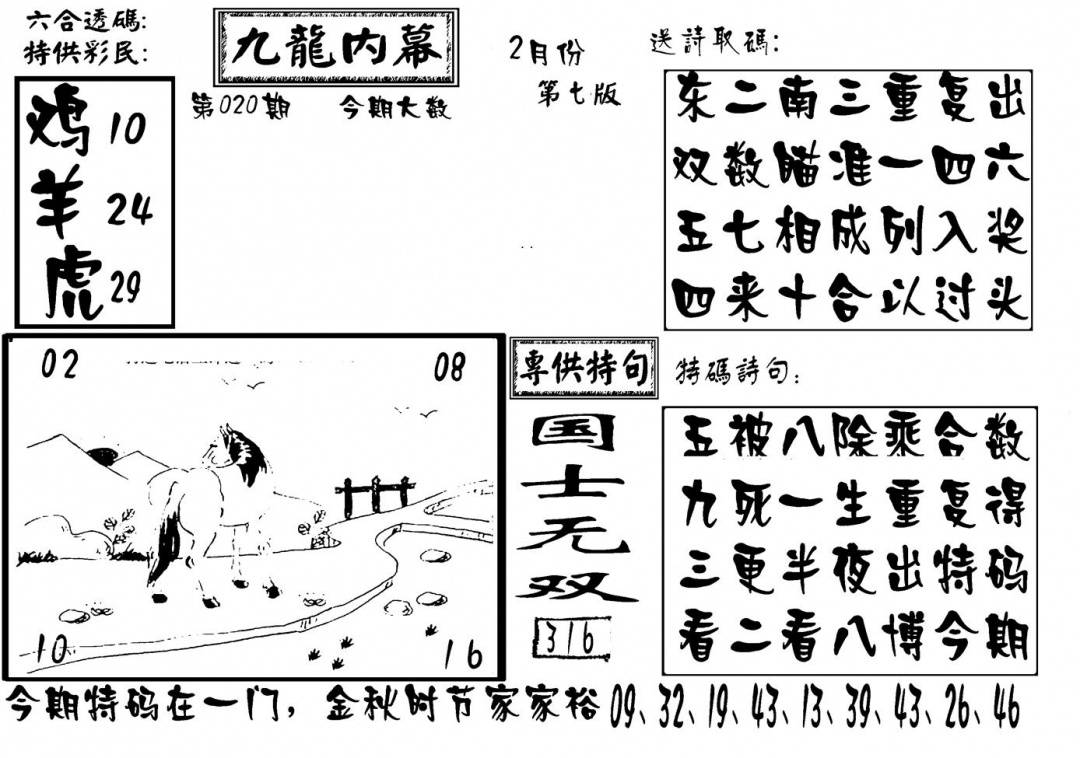 六合透碼:
特供彩民:
九龍内幕
2月份
第七版
第020期 今期大数
鸡 10
羊 24
虎 29
送詩取碼:
东二南三重复出
双数瞄准一四六
五七相成列入奖
四来十合以过头
02
08
10
16
專供特句
国士无双
316
特碼詩句:
五被八除乘合数
九死一生重复得
三更半夜出特码
看二看八博今期
今期特码在一门，金秋时节家家裕 09、32、19、43、13、39、43、26、46